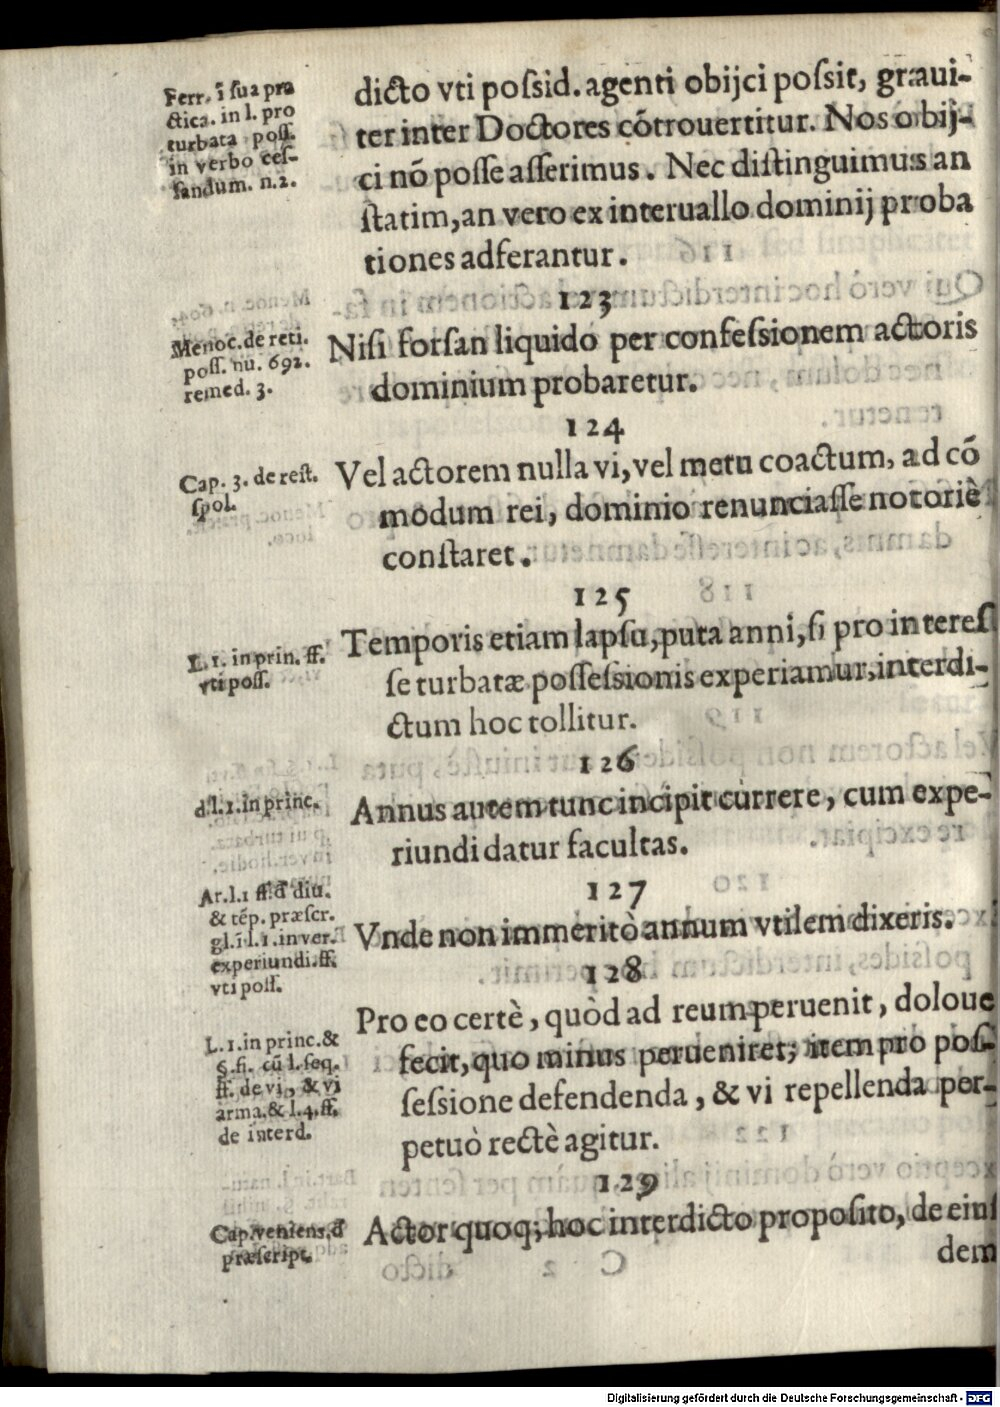 Ferr. ī ſua pra
ctica. in l. pro
turbata poſſ.
in verbo ceſ-
ſandum. n.2.
dicto vti poſsid. agenti obijci poſsit, graui-
ter inter Doctores cōtrouertitur. Nos obij-
ci nō poſſe aſſerimus. Nec diſtinguimus an
ſtatim, an vero ex interuallo dominij proba
tiones adferantur.
123
Menoc. de reti.
poſſ. nu. 692.
remed. 3.
Niſi forſan liquido per confeſsionem actoris
dominium probaretur.
124
Cap. 3. de reſt.
ſpol.
Vel actorem nulla vi, vel metu coactum, ad cō
modum rei, dominio renunciaſſe notoriè
conſtaret.
125
L. 1. in prin. ff.
vti poſſ.
Temporis etiam lapſu, puta anni, ſi pro intereſ
ſe turbatæ poſſeſsionis experiamur, interdi-
ctum hoc tollitur.
126
d.l.1.in princ.
Annus autem tunc incipit currere, cum expe-
riundi datur facultas.
127
Ar.l.1 ff.đ diu.
& tēp. præſcr.
gl.ī l.1.in ver.
experiundi.ff.
vti poſſ.
Vnde non immeritò annum vtilem dixeris.
128
L.1.in princ.&
§.fi. cū l.ſeq.
ff. de vi, & vi
arma.& l.4.ff.
de interd.
Pro eo certè, quòd ad reum peruenit, doloue
fecit, quo minus perueniret; item pro poſ-
ſeſsione defendenda, & vi repellenda per-
petuò rectè agitur.
129
Cap. veniens. đ
præſcript.
Actor quoq; hoc interdicto propoſito, de eiuſ
dem
Digitalisierung gefördert durch die Deutsche Forschungsgemeinschaft - DFG